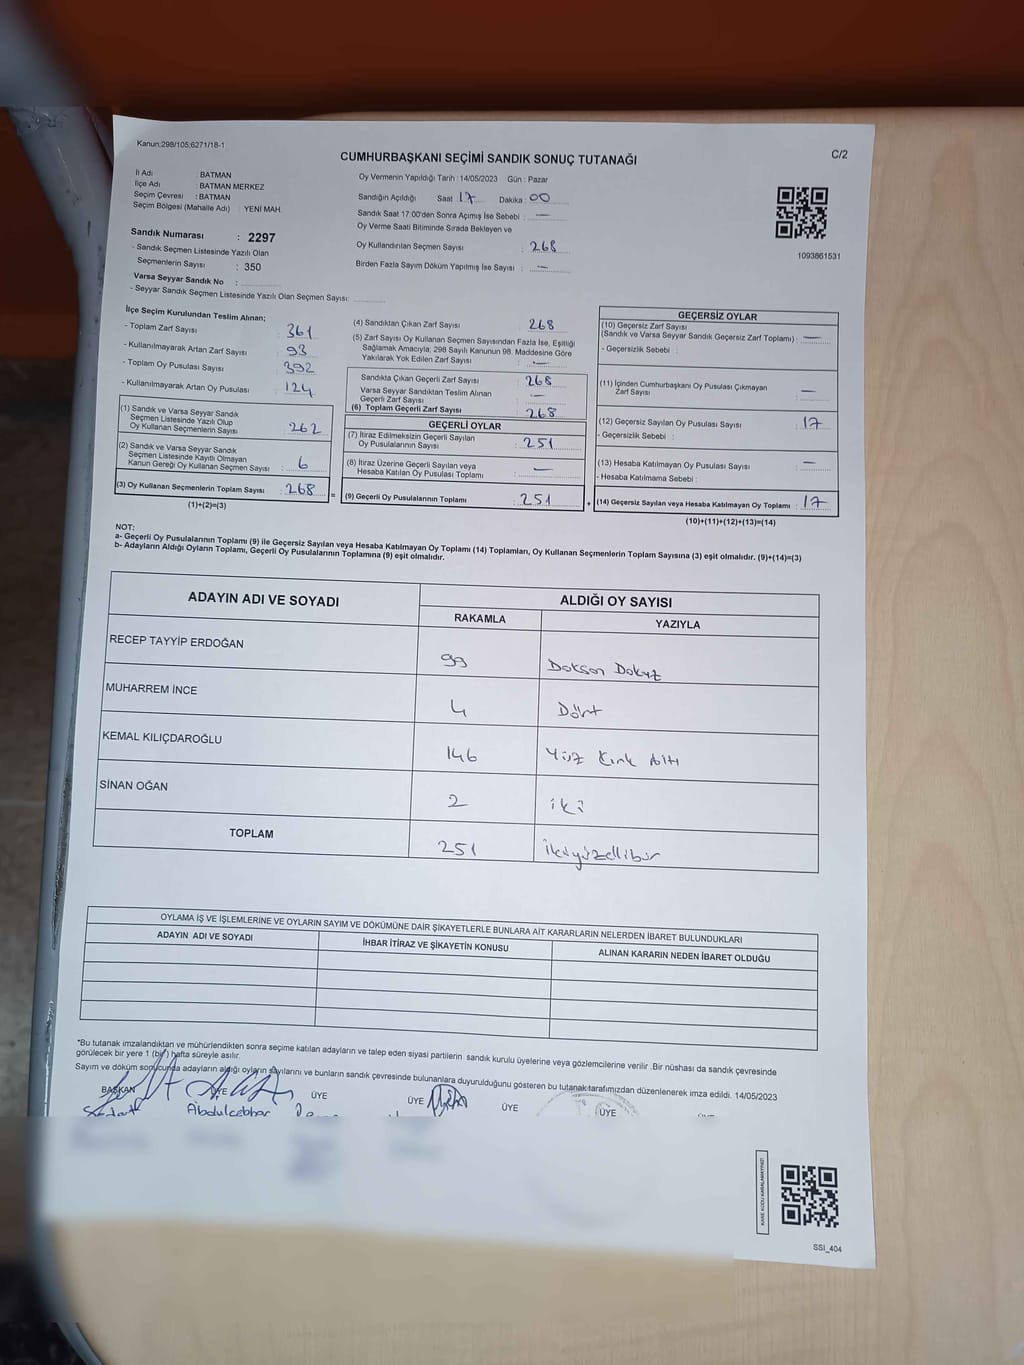 Kanun:298/105;6271/18-1
C/2
CUMHURBAŞKANI SEÇİMİ SANDIK SONUÇ TUTANAĞI
İl Adı : BATMAN
İlçe Adı : BATMAN MERKEZ
Seçim Çevresi : BATMAN
Seçim Bölgesi (Mahalle Adı) : YENİ MAH.
Sandık Numarası : 2297
- Sandık Seçmen Listesinde Yazılı Olan
Seçmenlerin Sayısı : 350
Varsa Seyyar Sandık No :
- Seyyar Sandık Seçmen Listesinde Yazılı Olan Seçmen Sayısı:
Oy Vermenin Yapıldığı Tarih : 14/05/2023 Gün : Pazar
Sandığın Açıldığı Saat 17 Dakika : 00
Sandık Saat 17:00'den Sonra Açımış İse Sebebi : —
Oy Verme Saati Bitiminde Sırada Bekleyen ve
Oy Kullandırılan Seçmen Sayısı : 268
Birden Fazla Sayım Döküm Yapılmış İse Sayısı : —
1093861531
İlçe Seçim Kurulundan Teslim Alınan;
- Toplam Zarf Sayısı 361
- Kullanılmayarak Artan Zarf Sayısı 93
- Toplam Oy Pusulası Sayısı 392
- Kullanılmayarak Artan Oy Pusulası 124
(1) Sandık ve Varsa Seyyar Sandık
Seçmen Listesinde Yazılı Olup
Oy Kullanan Seçmenlerin Sayısı : 262
(2) Sandık ve Varsa Seyyar Sandık
Seçmen Listesinde Kayıtlı Olmayan
Kanun Gereği Oy Kullanan Seçmen Sayısı : 6
(3) Oy Kullanan Seçmenlerin Toplam Sayısı : 268
(1)+(2)=(3)
=
(4) Sandıktan Çıkan Zarf Sayısı : 268
(5) Zarf Sayısı Oy Kullanan Seçmen Sayısından Fazla İse, Eşitliği
Sağlamak Amacıyla, 298 Sayılı Kanunun 98. Maddesine Göre
Yakılarak Yok Edilen Zarf Sayısı : —
Sandıkta Çıkan Geçerli Zarf Sayısı : 268
Varsa Seyyar Sandıktan Teslim Alınan
Geçerli Zarf Sayısı : —
(6) Toplam Geçerli Zarf Sayısı : 268
GEÇERLİ OYLAR
(7) İtiraz Edilmeksizin Geçerli Sayılan
Oy Pusulalarının Sayısı : 251
(8) İtiraz Üzerine Geçerli Sayılan veya
Hesaba Katılan Oy Pusulası Toplamı : —
(9) Geçerli Oy Pusulalarının Toplamı : 251
+
GEÇERSİZ OYLAR
(10) Geçersiz Zarf Sayısı
(Sandık ve Varsa Seyyar Sandık Geçersiz Zarf Toplamı) : —
- Geçersizlik Sebebi :
(11) İçinden Cumhurbaşkanı Oy Pusulası Çıkmayan
Zarf Sayısı : —
(12) Geçersiz Sayılan Oy Pusulası Sayısı : 17
- Geçersizlik Sebebi :
(13) Hesaba Katılmayan Oy Pusulası Sayısı : —
- Hesaba Katılmama Sebebi :
(14) Geçersiz Sayılan veya Hesaba Katılmayan Oy Toplamı : 17
(10)+(11)+(12)+(13)=(14)
NOT:
a- Geçerli Oy Pusulalarının Toplamı (9) ile Geçersiz Sayılan veya Hesaba Katılmayan Oy Toplamı (14) Toplamları, Oy Kullanan Seçmenlerin Toplam Sayısına (3) eşit olmalıdır. (9)+(14)=(3)
b- Adayların Aldığı Oyların Toplamı, Geçerli Oy Pusulalarının Toplamına (9) eşit olmalıdır.
ADAYIN ADI VE SOYADI ALDIĞI OY SAYISI
RAKAMLA YAZIYLA
RECEP TAYYİP ERDOĞAN 99 Doksan Dokuz
MUHARREM İNCE 4 Dört
KEMAL KILIÇDAROĞLU 146 Yüz Kırk Altı
SİNAN OĞAN 2 iki
TOPLAM 251 ikiyüzellibir
OYLAMA İŞ VE İŞLEMLERİNE VE OYLARIN SAYIM VE DÖKÜMÜNE DAİR ŞİKAYETLERLE BUNLARA AİT KARARLARIN NELERDEN İBARET BULUNDUKLARI
ADAYIN ADI VE SOYADI İHBAR İTİRAZ VE ŞİKAYETİN KONUSU ALINAN KARARIN NEDEN İBARET OLDUĞU
"Bu tutanak imzalandıktan ve mühürlendikten sonra seçime katılan adayların ve talep eden siyasi partilerin sandık kurulu üyelerine veya gözlemcilerine verilir .Bir nüshası da sandık çevresinde
görülecek bir yere 1 (bir) hafta süreyle asılır.
Sayım ve döküm sonucunda adayların aldığı oyların sayılarını ve bunların sandık çevresinde bulunanlara duyurulduğunu gösteren bu tutanak tarafımızdan düzenlenerek imza edildi. 14/05/2023
BAŞKAN ÜYE ÜYE ÜYE ÜYE ÜYE
Abdulcebbar
KARE KODU KARALAMAYINIZ!
SSI_404